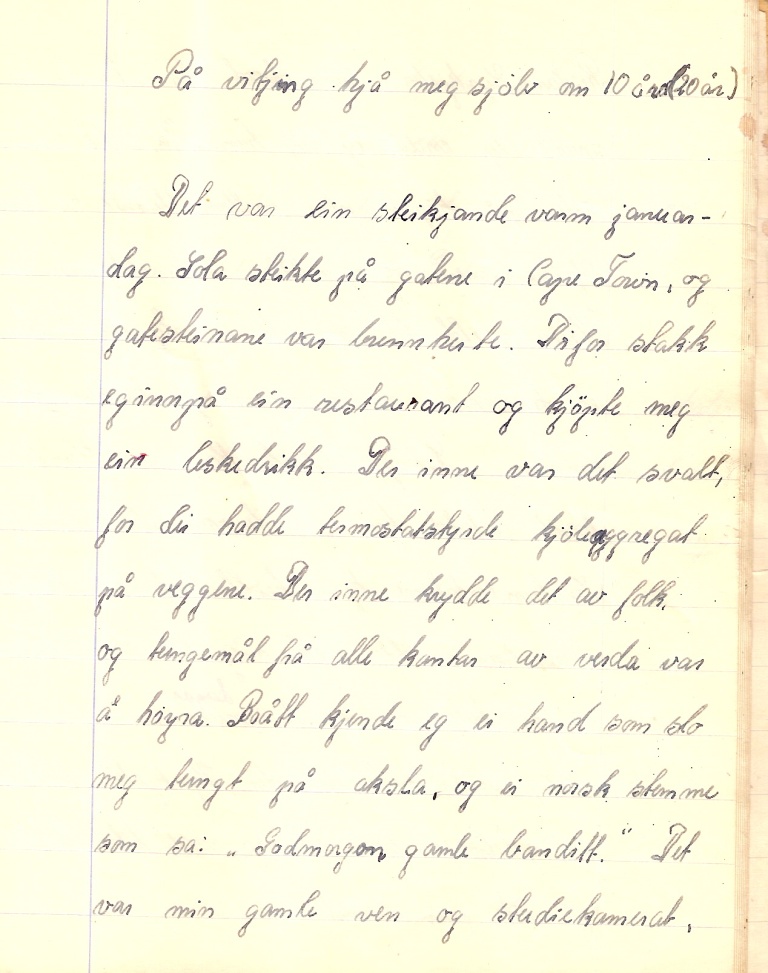 På vitjing hjå meg sjölv om 10 år (20 år)
Det var ein steikjande varm januar-
dag. Sola steikte på gatene i Cape Town, og
gatesteinane var brennheite. Difor stakk
eg innpå ein restaurant og kjöpte meg
ein leskedrikk. Der inne var det svalt,
for dei hadde termostatstyrde kjöleaggregat
på veggene. Der inne krydde det av folk,
og tungemål frå alle kantar av verda var
å høyra. Brått kjende eg ei hand som slo
meg tungt på aksla, og ei norsk stemme
som sa: „Godmorgon gamle banditt." Det
var min gamle ven og studiekamerat,